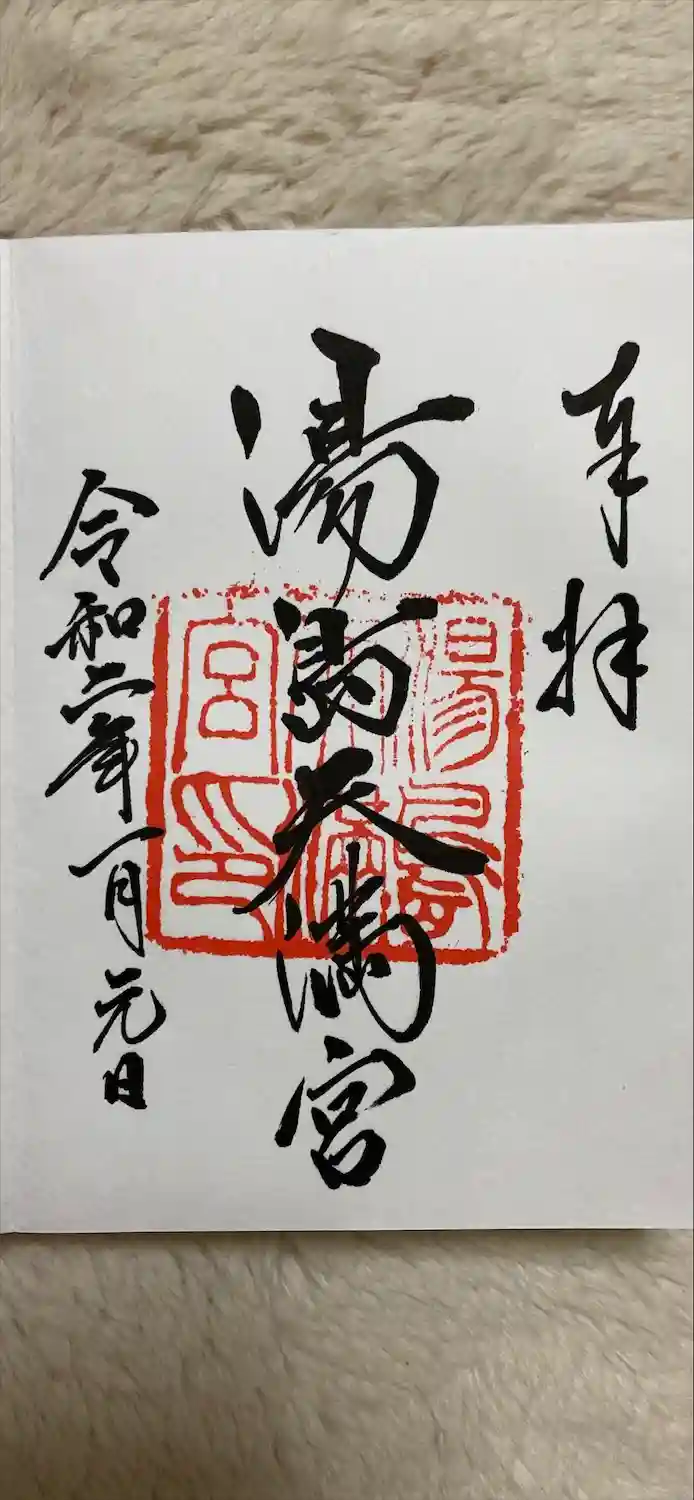 奉拝
湯島天満宮
湯島天満宮印
令和二年一月元日